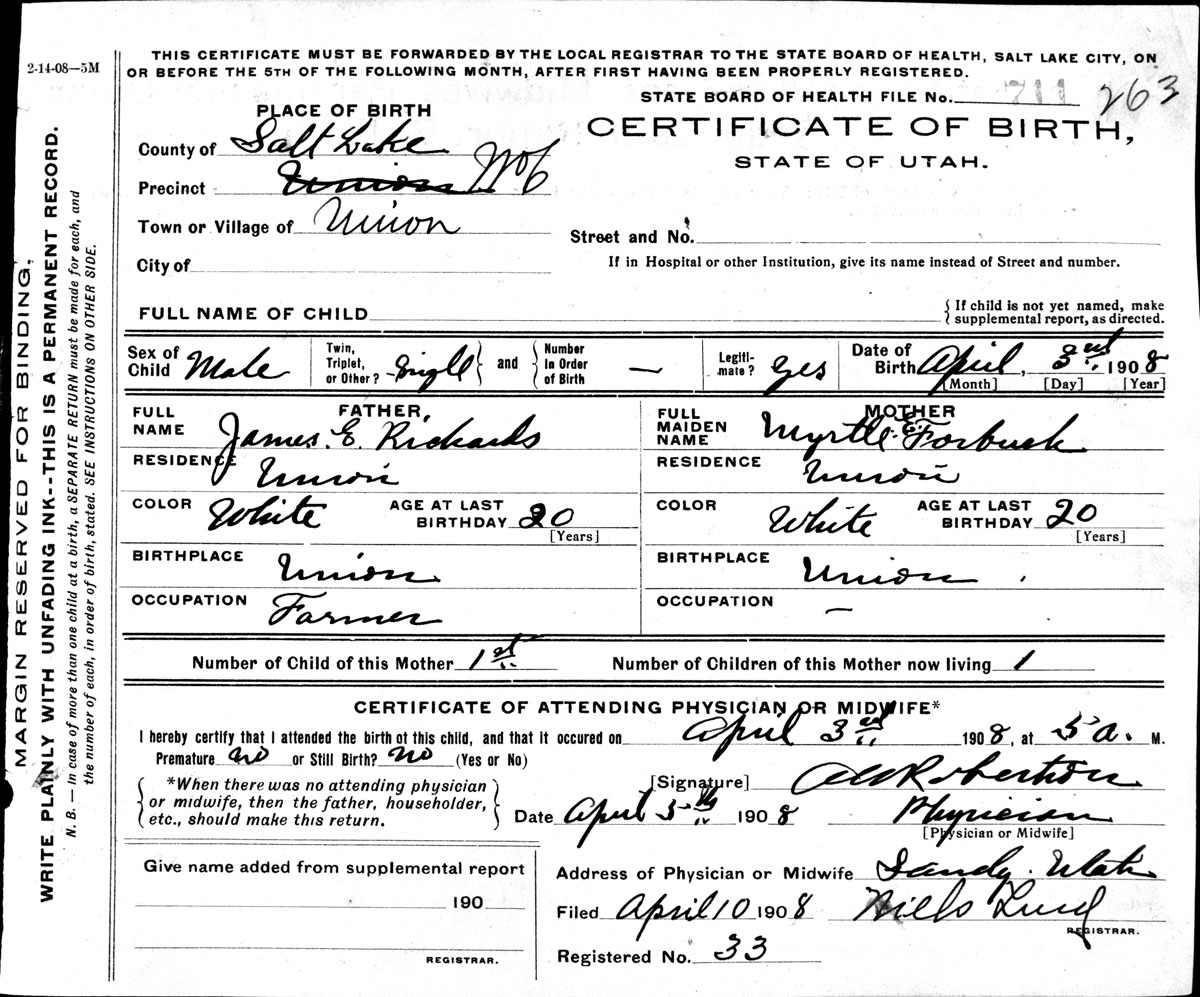 2-14-08—5M
MARGIN RESERVED FOR BINDING.
WRITE PLAINLY WITH UNFADING INK--THIS IS A PERMANENT RECORD.
N. B. — In case of more than one child at a birth, a SEPARATE RETURN must be made for each, and
the number of each, in order of birth, stated. SEE INSTRUCTIONS ON OTHER SIDE.
THIS CERTIFICATE MUST BE FORWARDED BY THE LOCAL REGISTRAR TO THE STATE BOARD OF HEALTH, SALT LAKE CITY, ON
OR BEFORE THE 5TH OF THE FOLLOWING MONTH, AFTER FIRST HAVING BEEN PROPERLY REGISTERED.
STATE BOARD OF HEALTH FILE No. 711 263
PLACE OF BIRTH
CERTIFICATE OF BIRTH,
STATE OF UTAH.
County of Salt Lake
Precinct Union No 6
Town or Village of Union
Street and No.
City of
If in Hospital or other Institution, give its name instead of Street and number.
FULL NAME OF CHILD
{ If child is not yet named, make
supplemental report, as directed.
Sex of Child Male
Twin, Triplet, or Other? Single } and { Number In Order of Birth —
Legiti-mate? yes
Date of Birth April, 3rd 1908
[Month] [Day] [Year]
FATHER,
FULL NAME James. E. Richards
RESIDENCE Union
COLOR White AGE AT LAST BIRTHDAY 20
[Years]
BIRTHPLACE Union
OCCUPATION Farmer
MOTHER
FULL MAIDEN NAME Myrtle E. Forbush
RESIDENCE Union
COLOR White AGE AT LAST BIRTHDAY 20
[Years]
BIRTHPLACE Union
OCCUPATION —
Number of Child of this Mother 1st Number of Children of this Mother now living 1
CERTIFICATE OF ATTENDING PHYSICIAN OR MIDWIFE*
I hereby certify that I attended the birth of this child, and that it occured on April 3rd 1908, at 5 a. M.
Premature no or Still Birth? no (Yes or No)
{ *When there was no attending physician
or midwife, then the father, householder,
etc., should make this return. }
[Signature] Robertson
Date April 5th 1908 Physician
[Physician or Midwife]
Give name added from supplemental report
190
REGISTRAR.
Address of Physician or Midwife Sandy. Utah
Filed April 10 1908 Niels Lind
REGISTRAR.
Registered No. 33